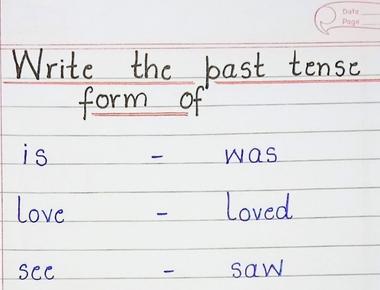 Date
Page
Write the past tense
form of
is - was
love - loved
see - saw